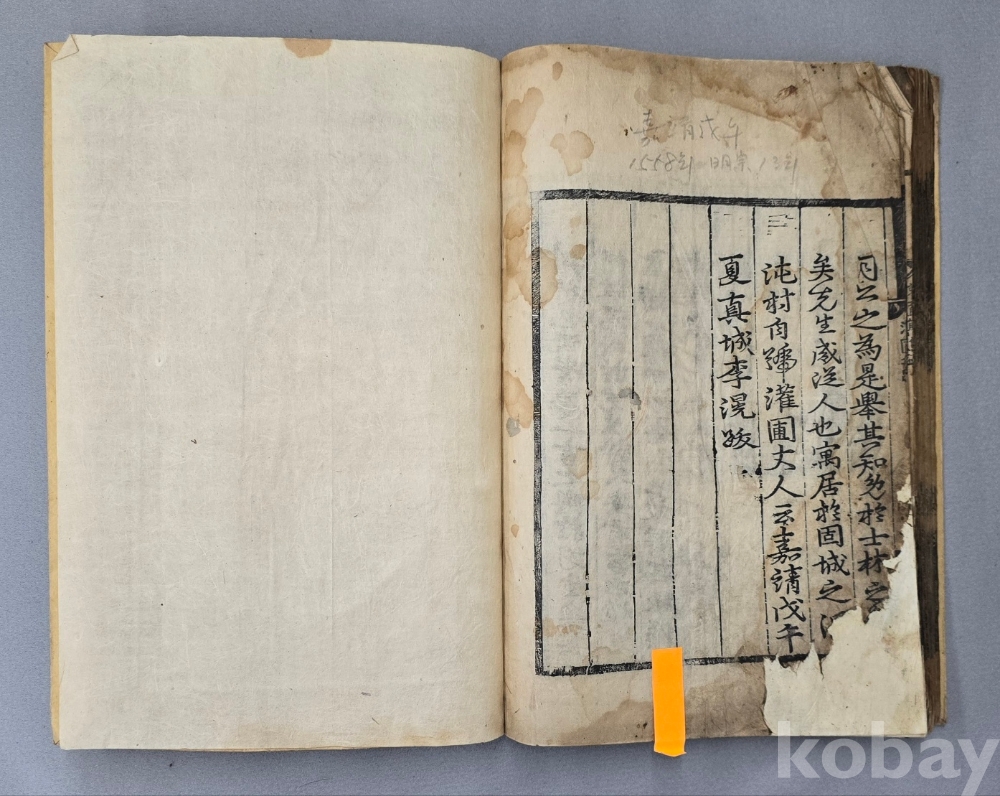 嘉靖戊午
1558년 明宗 13년
公之為是舉其知免於士材之
矣先生咸從人也寓居於固城之
沌村自號灌圃丈人云嘉靖戊午
夏真城李滉跋
kobay